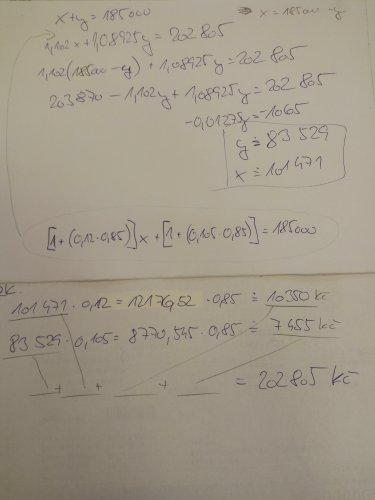 x+y = 185000
x = 185000 -y
1,102x+1,08925y = 202805
1,102(185000 -y) + 1,08925y = 202 805
203870 - 1,102y + 1,08925y = 202 805
-0,01275y = -1065
y ≐ 83 529
x ≐ 101471
[1+(0,12·0,85)]x + [1+(0,105·0,85)] = 185000
ZK.
101 471 · 0,12 = 12176,52 · 0,85 ≐ 10350 Kč
83 529 · 0,105 = 8770,545 · 0,85 ≐ 7455 Kč
__ + __ + __ + __ = 202805 Kč